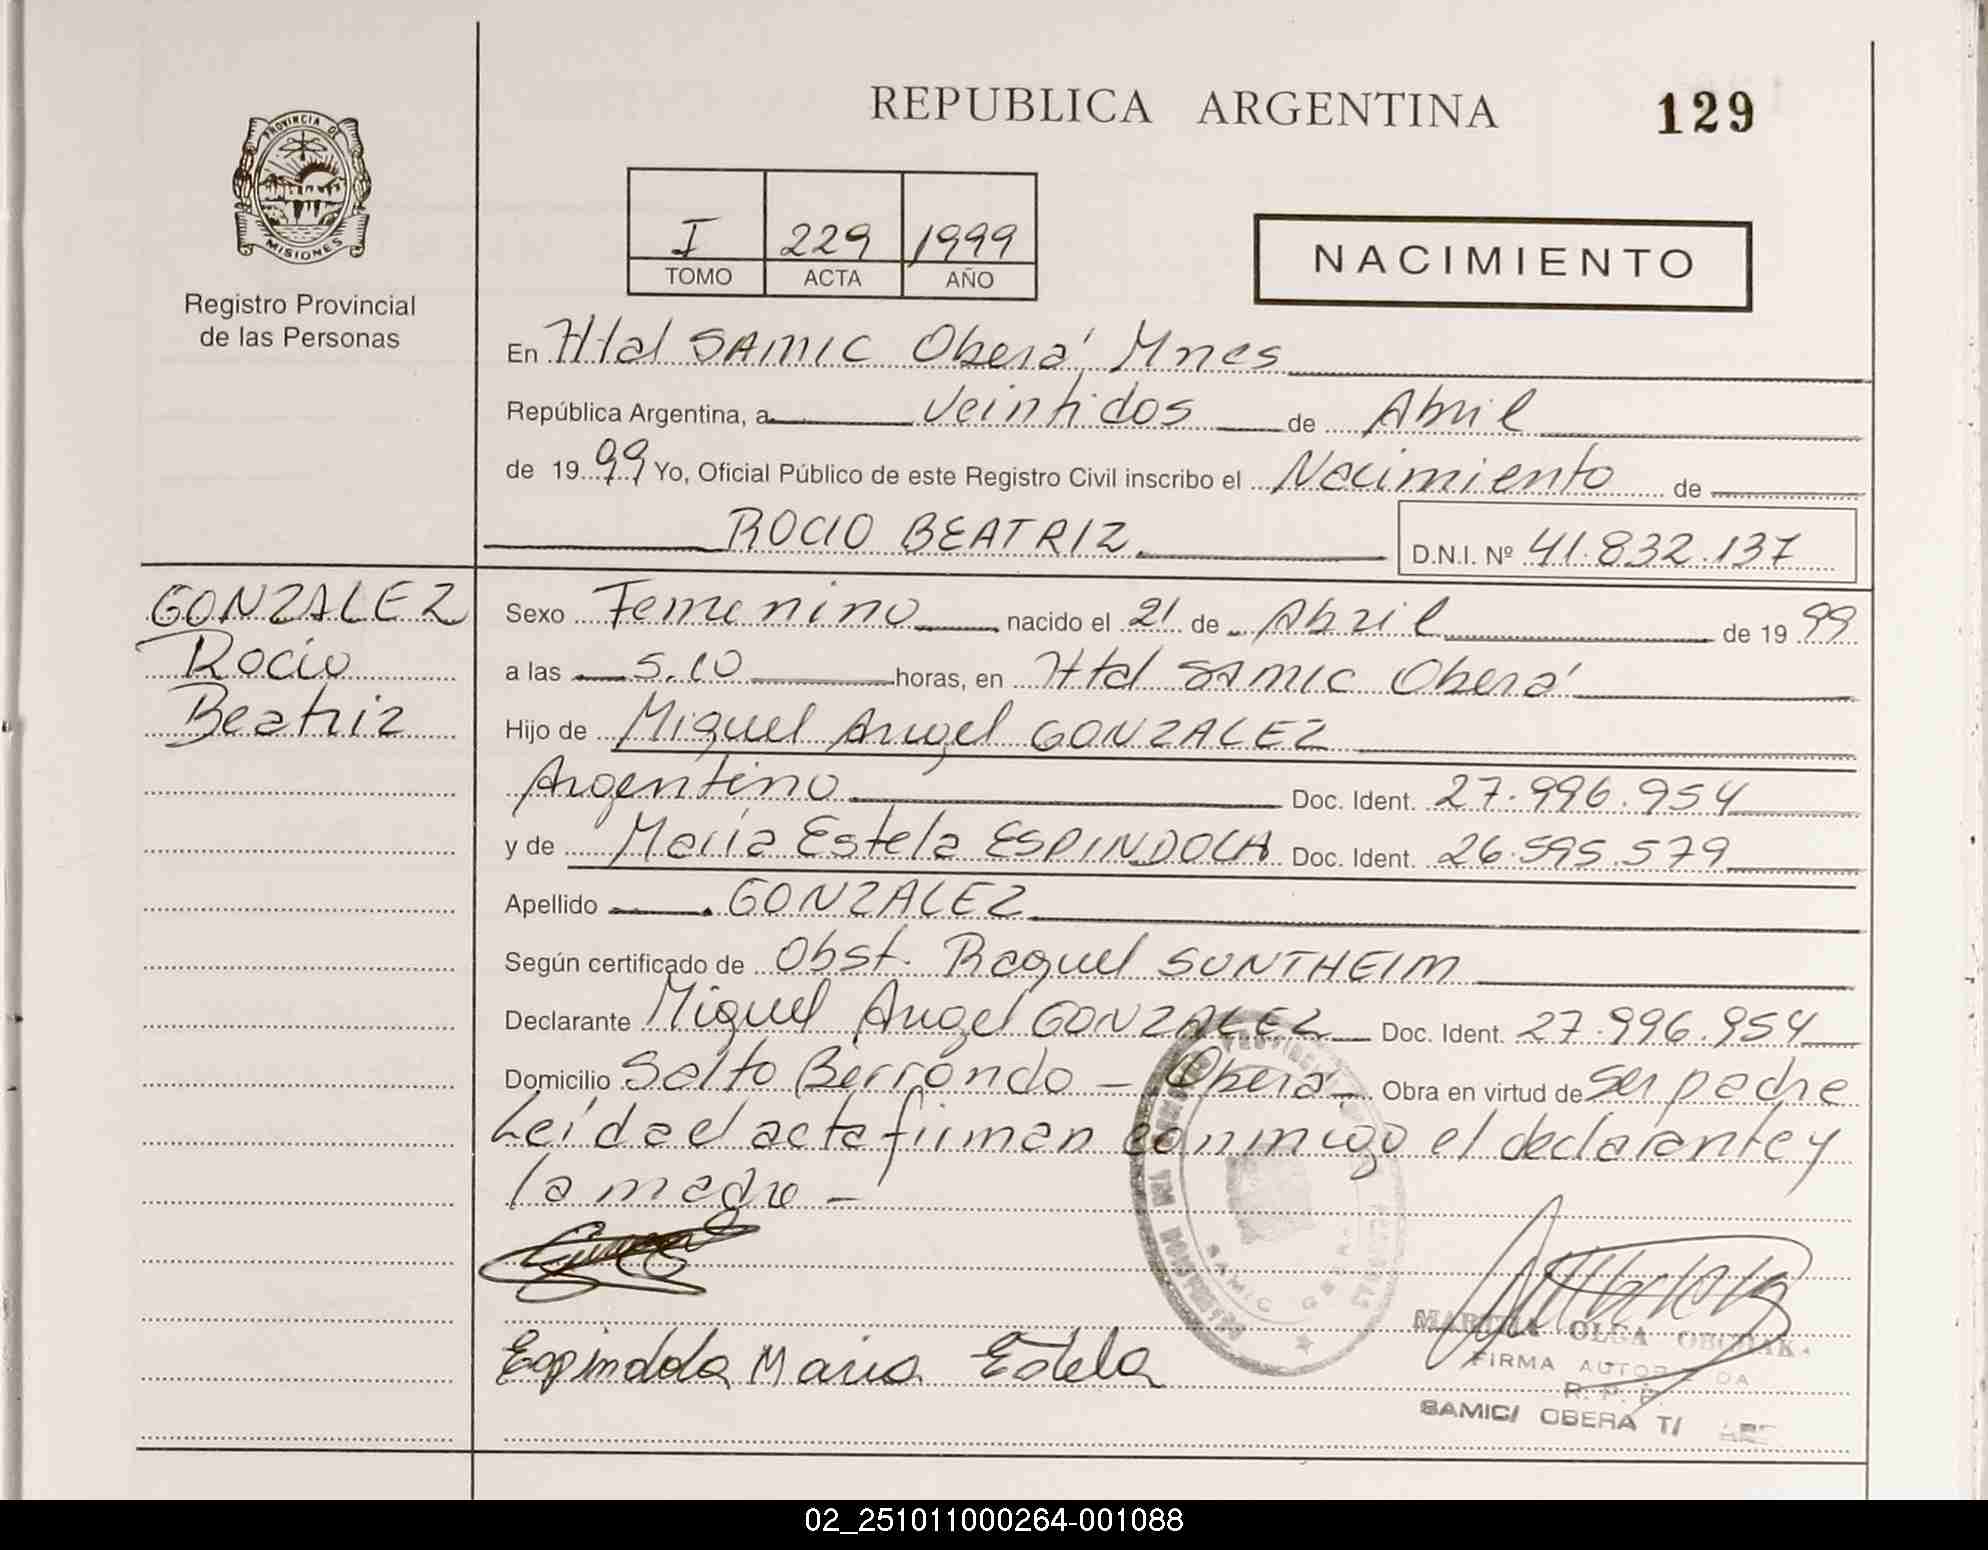 REPUBLICA ARGENTINA
129
PROVINCIA DE
MISIONES
Registro Provincial
de las Personas
I 229 1999
TOMO ACTA AÑO
NACIMIENTO
En Htal SAMIC Oberá Mnes
República Argentina, a Veintidos de Abril
de 19 99 Yo, Oficial Público de este Registro Civil inscribo el Nacimiento de
ROCIO BEATRIZ D.N.I. Nº 41.832.137
GONZALEZ
Rocio
Beatriz
Sexo Femenino nacido el 21 de Abril de 19 99
a las 5.10 horas, en Htal SAMIC Oberá
Hijo de Miguel Angel GONZALEZ
Argentino Doc. Ident. 27.996.954
y de María Estela ESPINDOLA Doc. Ident. 26.595.579
Apellido GONZALEZ
Según certificado de Obst. Raquel SUNTHEIM
Declarante Miguel Angel GONZALEZ Doc. Ident. 27.996.954
Domicilio Salto Berrondo - Oberá Obra en virtud de ser padre
Leída el acta firman conmigo el declarante y
la madre -
Espindola Maria Estela
OLGA
FIRMA
SAMIC/ OBERA T/
02_251011000264-001088